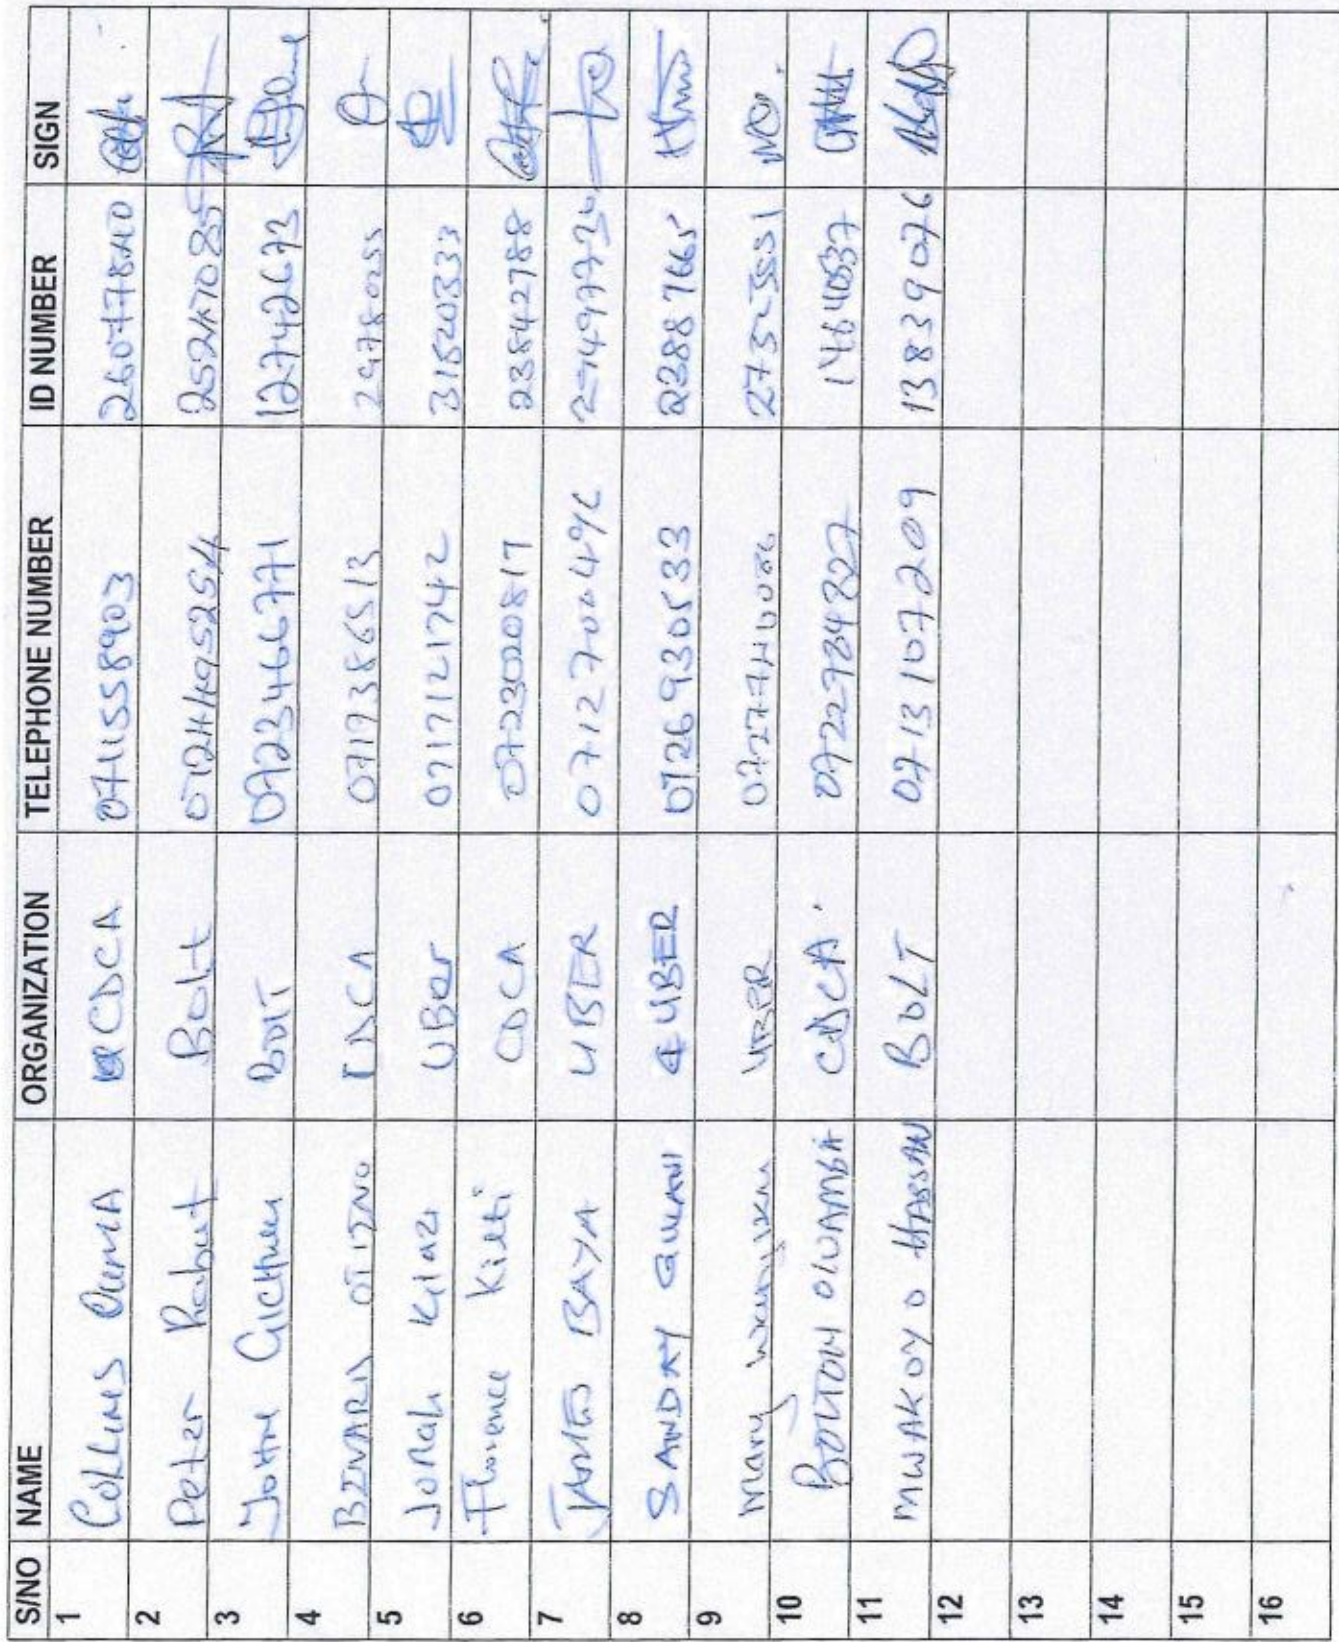 S/NO NAME ORGANIZATION TELEPHONE NUMBER ID NUMBER SIGN
1 Collins Ouma CDCA 0711558903
2 Peter Bolt 0724495254
3 John Githu BOLT 0723466771 12742673
4 BENARD OTIENO CDCA 0719386513 24780255
5 Jonah Kiazi UBer 0717121742 31520333
6 Florence Kilei CDCA 0723020817 23842788
7 JAMES BAYA UBER 071270049
8 SANDAY UBER 0726930533 22887665
9 Mary wanjiku UBER 27325551
10 BOLTON OLWAMBA CDCA. 0722784327
11 MWAKOYO HASSAN BOLT 0713107209 13839076
12
13
14
15
16